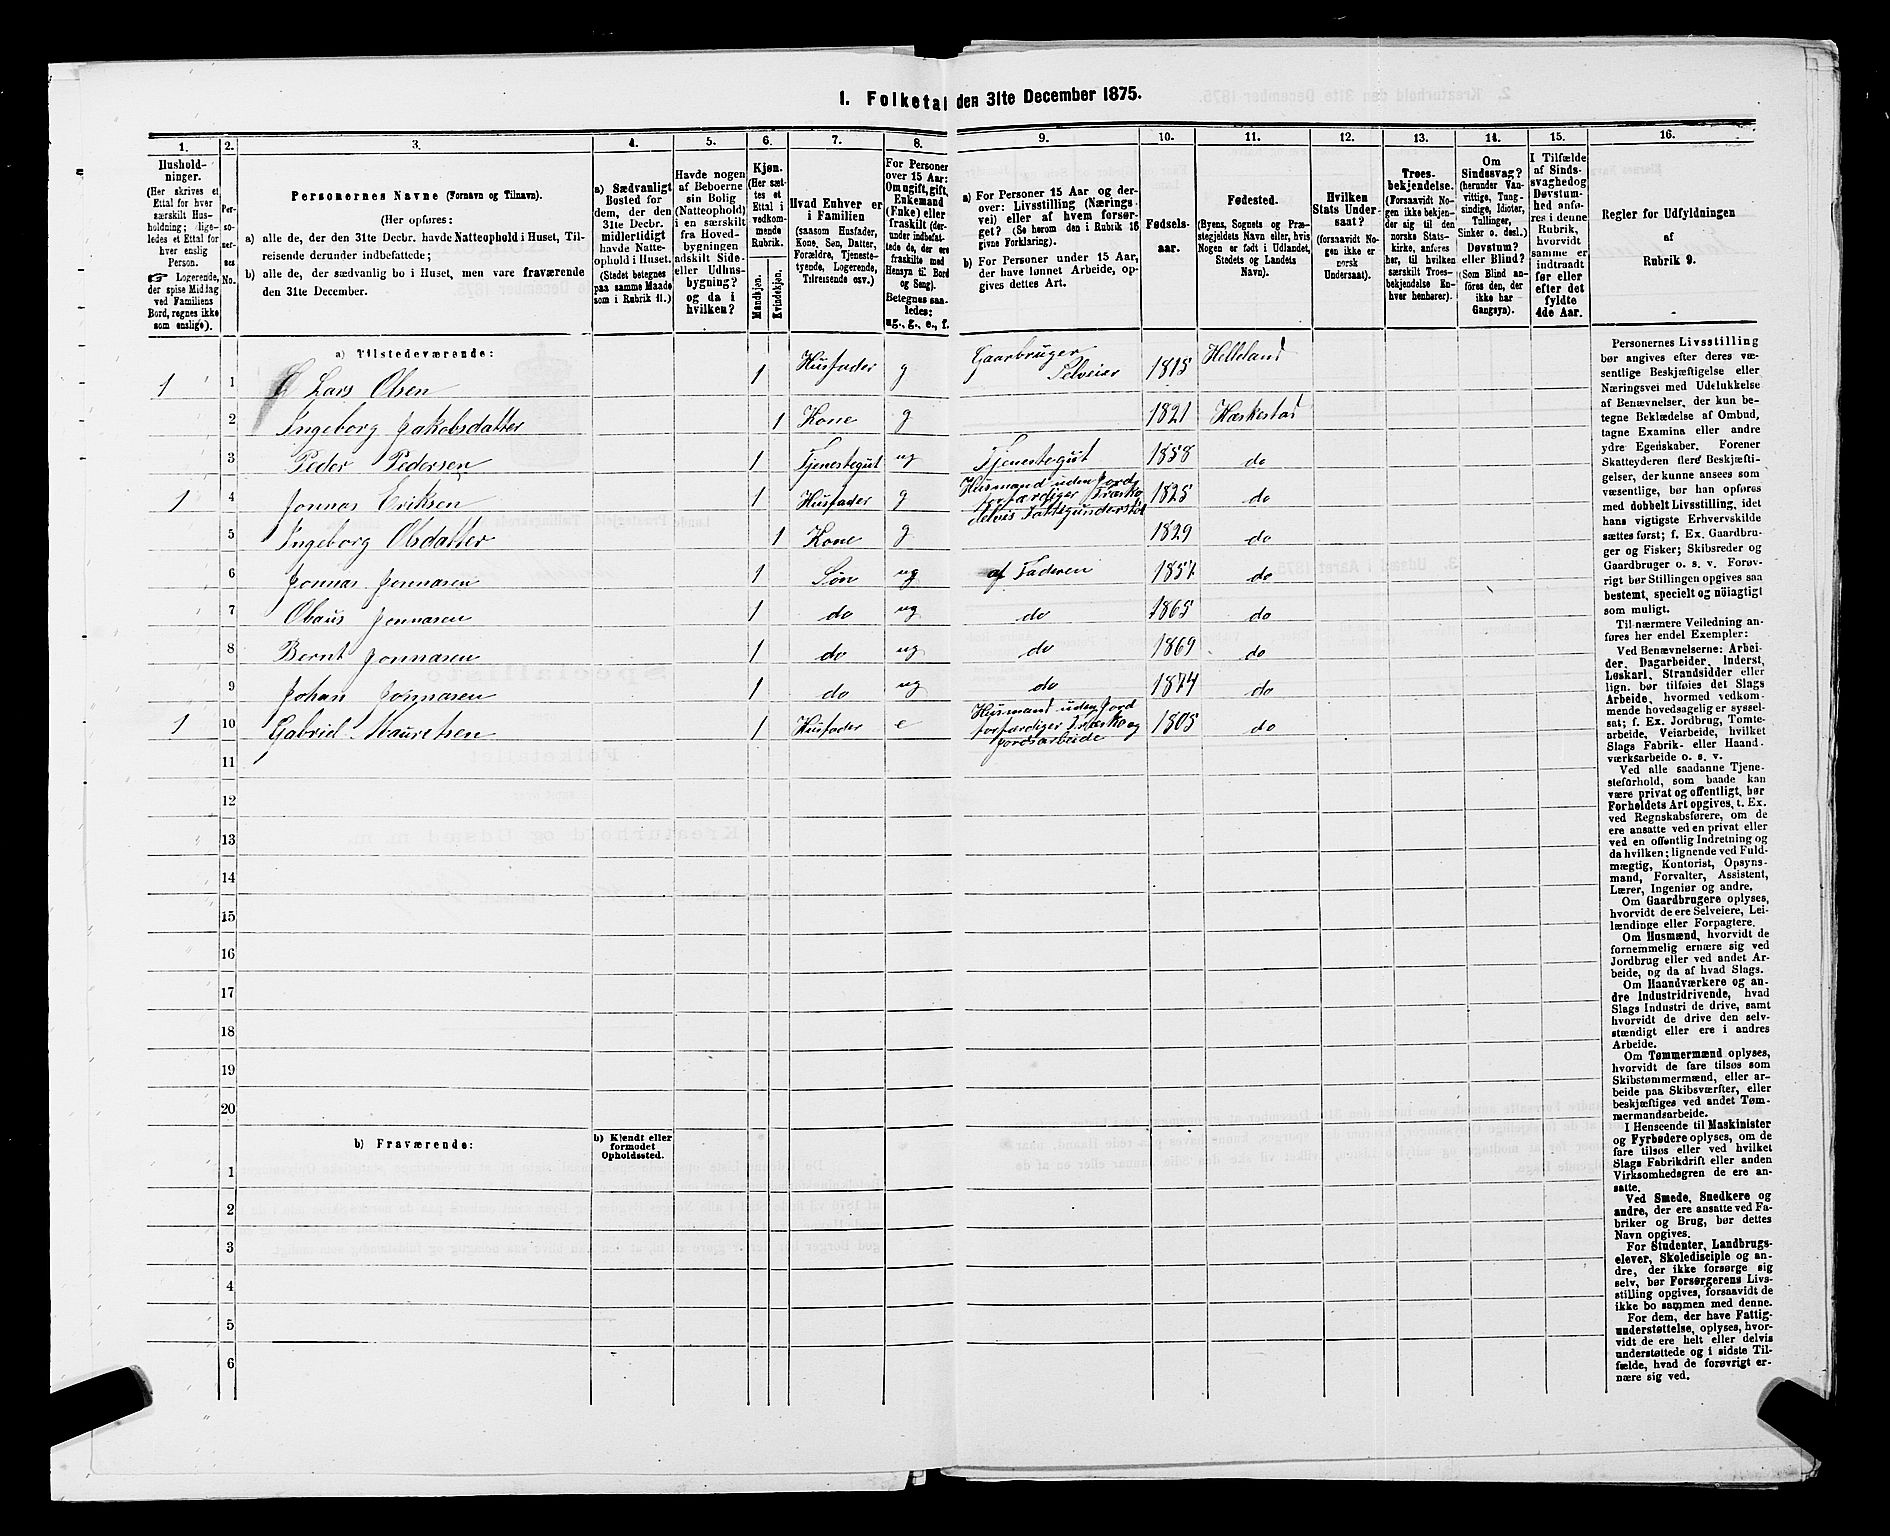 1. Folketal den 31te December 1875.
1.
Hushold-
ninger.
(Her skrives et
Ettal for hver
særskilt Hus-
holdning; lige-
ledes et Ettal for
hver enslig
Person.
☞ Logerende,
der spise Middag
ved Familiens
Bord, regnes ikke
som enslige).
2.
Per-
so-
ner-
nes
No.
3.
Personernes Navne (Fornavn og Tilnavn).
(Her opføres:
a) alle de, der den 31te Decbr. havde Natteophold i Huset, Til-
reisende derunder indbefattede;
b) alle de, der sædvanlig bo i Huset, men vare fraværende
den 31te December.
4.
a) Sædvanligt
Bosted for
dem, der den
31te Decbr.
midlertidigt
havde Natte-
ophold i Huset.
(Stedet betegnes
paa samme Maade
som i Rubrik 11.)
5.
Havde nogen
af Beboerne
sin Bolig
(Natteophold)
i en særskilt
fra Hoved-
bygningen
adskilt Side-
eller Udhus-
bygning?
og da i
hvilken?
6.
Kjøn.
(Her sæt-
tes et
Ettal i
vedkom-
mende
Rubrik.
Mandkjøn.
Kvindekjøn.
7.
Hvad Enhver er
i Familien
(saasom Husfader,
Kone, Søn, Datter,
Forældre, Tjeneste-
tyende, Logerende,
Tilreisende osv.)
8.
For Personer
over 15 Aar:
Om ugift, gift,
Enkemand
(Enke) eller
fraskilt (der-
under indbefat-
tede de, der ere
fraskilte med
Hensyn til Bord
og Seng).
Betegnes saa-
ledes:
ug., g., e., f.
9.
a) For Personer 15 Aar og der-
over: Livsstilling (Nærings-
vei) eller af hvem forsør-
get? (Se herom den i Rubrik 16
givne Forklaring).
b) For Personer under 15 Aar,
der have lønnet Arbeide, op-
gives dettes Art.
10.
Fødsels-
aar.
11.
Fødested.
(Byens, Sognets og Præ-
stegjeldets Navn eller, hvis
Nogen er født i Udlandet,
Stedets og Landets
Navn).
12.
Hvilken
Stats Under-
saat?
(forsaavidt No-
gen ikke er
norsk
Undersaat).
13.
Troes-
bekjendelse.
(Forsaavidt No-
gen ikke bekjen-
der sig til den
norske Stats-
kirke, anføres
her, til hvilken
særskilt Troes-
bekjendelse En-
hver henhører).
14.
Om
Sindssvag?
(herunder Van-
vittige, Tung-
sindige, Idioter,
Tullinger,
Sinker o. desl.)
Døvstum?
eller Blind?
(Som Blind an-
føres den, der
ikke har
Gangsyn).
15.
I Tilfælde
af Sinds-
svaghed og
Døvstum-
hed anfø-
res i denne
Rubrik,
hvorvidt
samme er
indtraadt
før eller
efter det
fyldte
4de Aar.
16.
Regler for Udfyldningen
af
Rubrik 9.
a) Tilstedeværende:
1 1 Lars Olsen 1 Husfader g Gaarbruger Selveier 1815 Helleland
2 Ingeborg Jakobsdatter 1 Kone g 1821 Hæskestad
3 Peder Pedersen 1 Tjenestegut ug Tjenestegut 1858 do
1 4 Jonnas Eriksen 1 Husfader g Husmand uden Jord forfærdiger Træsko delvis Fattigunderstøt 1825 do
5 Ingeborg Olsdatter 1 Kone g 1829 do
6 Jonnas Jonnasen 1 Søn ug af Faderen 1857 do
7 Olaus Jonnasen 1 do ug do 1865 do
8 Bernt Jonnasen 1 do ug do 1869 do
9 Johan Jonnasen 1 do ug do 1874 do
1 10 Gabriel Mauretsen 1 Husfader e Husmand uden Jord forfærdiger Træsko og Jordsarbeide 1805 do
11
12
13
14
15
16
17
18
19
20
b) Fraværende:
b) Kjendt eller
formodet
Opholdssted.
1
2
3
4
5
6
Personernes Livsstilling
bør angives efter deres væ-
sentlige Beskjæftigelse eller
Næringsvei med Udelukkelse
af Benævnelser, der kun be-
tegne Beklædelse af Ombud,
tagne Examina eller andre
ydre Egenskaber. Forener
Skatteyderen flere Beskjæfti-
gelser, der kunne ansees som
væsentlige, bør han opføres
med dobbelt Livsstilling, idet
hans vigtigste Erhvervskilde
sættes først; f. Ex. Gaardbru-
ger og Fisker; Skibsreder og
Gaardbruger o. s. v. Forøv-
rigt bør Stillingen opgives saa
bestemt, specielt og nøiagtigt
som muligt.
Til nærmere Veiledning an-
føres her endel Exempler:
Ved Benævnelserne: Arbei-
der, Dagarbeider, Inderst,
Løskarl, Strandsidder eller
lign. bør tilføies det Slags
Arbeide, hvormed vedkom-
mende hovedsagelig er syssel-
sat; f. Ex. Jordbrug, Tomte-
arbeide, Veiarbeide, hvilket
Slags Fabrik- eller Haand-
værksarbeide o. s. v.
Ved alle saadanne Tjene-
steforhold, som baade kan
være privat og offentligt, bør
Forholdets Art opgives, t. Ex.
ved Regnskabsførere, om de
ere ansatte ved en privat eller
ved en offentlig Indretning og
da hvilken; lignende ved Fuld-
mægtig, Kontorist, Opsyns-
mand, Forvalter, Assistent,
Lærer, Ingeniør og andre.
Om Gaardbrugere oplyses,
hvorvidt de ere Selveiere, Lei-
lændinge eller Forpagtere.
Om Husmænd, hvorvidt de
fornemmelig ernære sig ved
Jordbrug eller ved andet Ar-
beide, og da af hvad Slags.
Om Haandværkere og an-
dre Industridrivende, hvad
Slags Industri de drive, samt
hvorvidt de drive den selv-
stændigt eller ere i andres
Arbeide.
Om Tømmermænd oplyses,
hvorvidt de fare tilsøs som
Skibstømmermænd, eller ar-
beide paa Skibsværfter, eller
beskjæftiges ved andet Tøm-
mermandsarbeide.
I Henseende til Maskinister
og Fyrbødere oplyses, om de
fare tilsøs eller ved hvilket
Slags Fabrikdrift eller anden
Virksomhedsgren de ere an-
satte.
Ved Smede, Snedkere og
andre, der ere ansatte ved Fa-
briker og Brug, bør dettes
Navn opgives.
For Studenter, Landbrugs-
elever, Skoledisciple og an-
dre, der ikke forsørge sig
selv, bør Forsørgerens Livs-
stilling opgives, forsaavidt de
ikke bo sammen med denne.
For dem, der have Fattig-
understøttelse, oplyses, hvor-
vidt de ere helt eller delvis
understøttede og i sidste Til-
fælde, hvad de forøvrigt er-
nære sig ved.